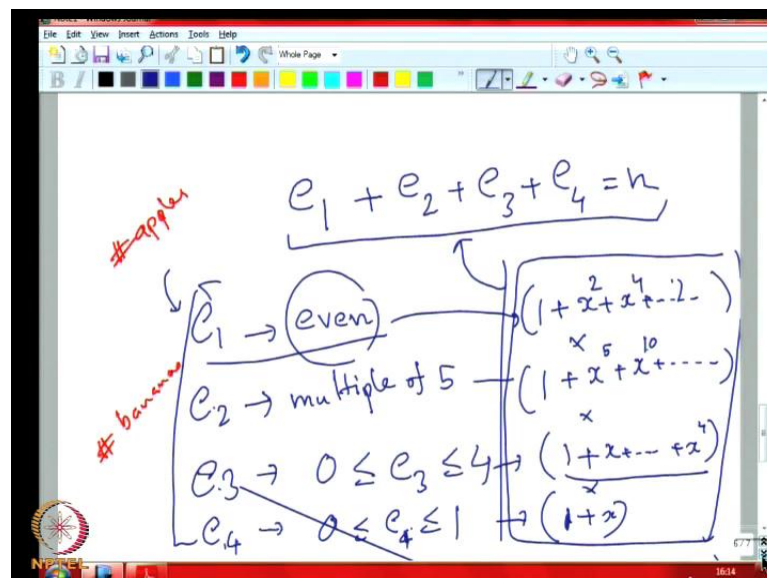 File Edit View Insert Actions Tools Help
Whole Page
B I
e₁ + e₂ + e₃ + e₄ = n
# apples
e₁ → even (1 + x² + x⁴ + ...)
×
# bananas
e₂ → multiple of 5 (1 + x⁵ + x¹⁰ + ....)
×
e₃ → 0 ≤ e₃ ≤ 4 → (1 + x + ... + x⁴)
×
e₄ → 0 ≤ e₄ ≤ 1 → (1 + x)
NPTEL
16:14